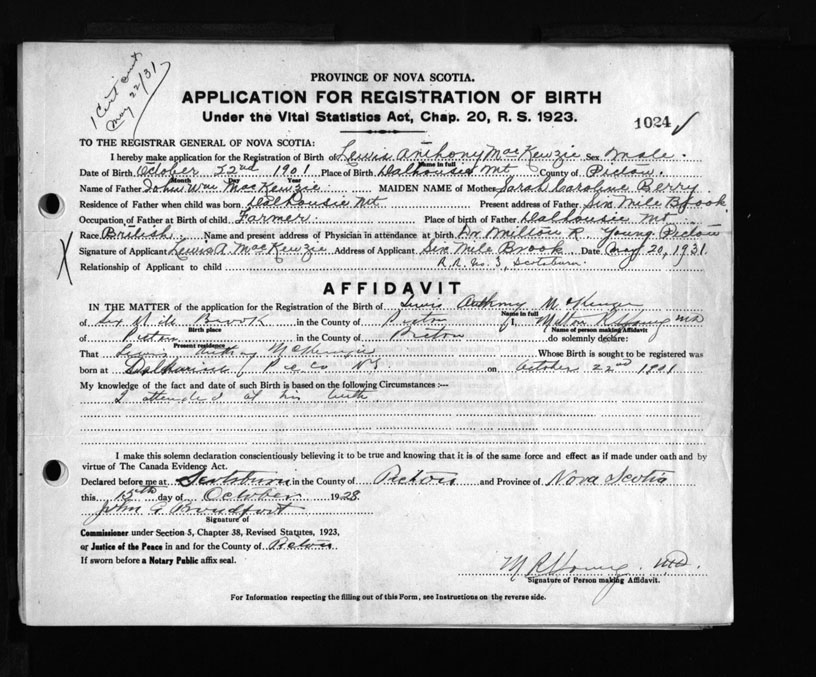 1 Cert sent
May 22/31
PROVINCE OF NOVA SCOTIA.
APPLICATION FOR REGISTRATION OF BIRTH
Under the Vital Statistics Act, Chap. 20, R. S. 1923.
1024 ✓
TO THE REGISTRAR GENERAL OF NOVA SCOTIA:
I hereby make application for the Registration of Birth of Lewis Anthony MacKenzie Sex Male.
Name in full
Date of Birth October 22nd 1901 Place of Birth Dalhousie Mt. County of Pictou.
Month Day Year
Name of Father John Wm MacKenzie. MAIDEN NAME of Mother Sarah Caroline Berry.
Residence of Father when child was born Dalhousie Mt Present address of Father Six Mile Brook
Occupation of Father at Birth of child Farmer. Place of birth of Father Dalhousie Mt.
Race British. Name and present address of Physician in attendance at birth Dr Milton R. Young Pictou
X Signature of Applicant Lewis A MacKenzie Address of Applicant Six Mile Brook Date May 20, 1931.
Relationship of Applicant to child R.R. No. 3, Scotsburn.
AFFIDAVIT
IN THE MATTER of the application for the Registration of the Birth of Lewis Anthony McKenzie
Name in full
of Six Mile Brook in the County of Pictou I, Milton R Young MD
Birth place Name of person making Affidavit
of Pictou in the County of Pictou do solemnly declare:
Present residence
That Lewis Anthony McKenzie Whose Birth is sought to be registered was
born at Dalhousie Pic Co NS on October 22nd 1901
My knowledge of the fact and date of such Birth is based on the following Circumstances :—
I attended at his birth
I make this solemn declaration conscientiously believing it to be true and knowing that it is of the same force and effect as if made under oath and by
virtue of The Canada Evidence Act.
Declared before me at Scotsburn in the County of Pictou and Province of Nova Scotia
this 15th day of October 1928
John G
Signature of
Commissioner under Section 5, Chapter 38, Revised Statutes, 1923,
or Justice of the Peace in and for the County of Pictou
If sworn before a Notary Public affix seal.
M R Young MD.
Signature of Person making Affidavit.
For Information respecting the filling out of this Form, see Instructions on the reverse side.